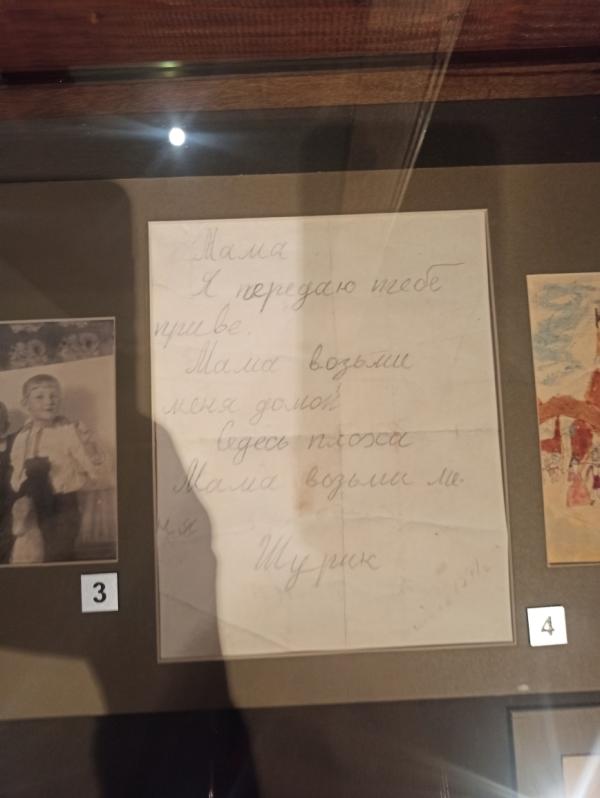 Мама
Я передаю тебе
приве.
Мама возьми
меня домой
Седесь плоха
Мама возьми ме-
ня
Шурик
3
4